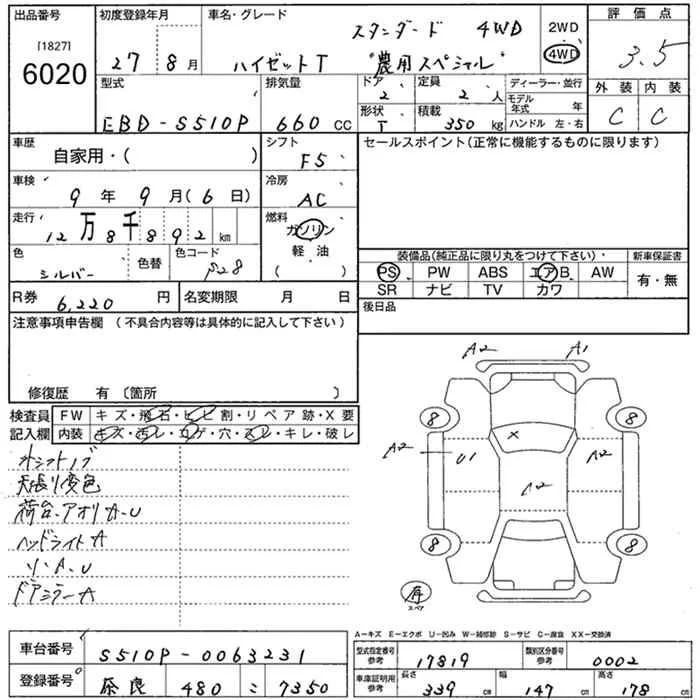 出品番号 初度登録年月 車名・グレード 評価点
[1827]
6020
27年 8月
スタンダード 4WD
ハイゼットT "農用スペシャル"
2WD
4WD
3.5
型式 排気量 ドア 定員 ディーラー・並行 外装 内装
EBD-S510P 660 CC 2 2人 モデル年式 年 C C
形状 積載 ハンドル 左・右
T 350 kg
車歴 シフト セールスポイント(正常に機能するものに限ります)
自家用・( ) F5
車検 冷房
9年 9月(6日) AC
走行 燃料
12万8千892km ガソリン
軽油
( )
色 色替 色コード
シルバー S28
装備品(純正品に限り丸をつけて下さい)・ 新車保証書
PS PW ABS エアB AW 有・無
SR ナビ TV カワ
R券 6,220円 名変期限 月 日 後日品
注意事項申告欄 (不具合内容等は具体的に記入して下さい)
修復歴 有 〔箇所 〕
検査員 FW キズ・飛石・ヒビ割・リペア跡・X要
記入欄 内装 キズ・汚レ・コゲ・穴・スレ・キレ・破レ
シフトノブ
天張り変色
荷台・アオリA・U
ヘッドライトA
リ・A・U
ドアミラーA
A2 A1
8 8
A2 U1 X A2
A2
8 8
有
スペア
A-キズ E-エクボ U-凹み W-補修跡 S-サビ C-腐食 XX-交換済
車台番号 S510P-0063231
型式指定番号 参考 17819 類別区分番号 参考 0002
登録番号 奈良 480 こ 7350
車庫証明用 参考 長さ 339cm 幅 147cm 高さ 178cm